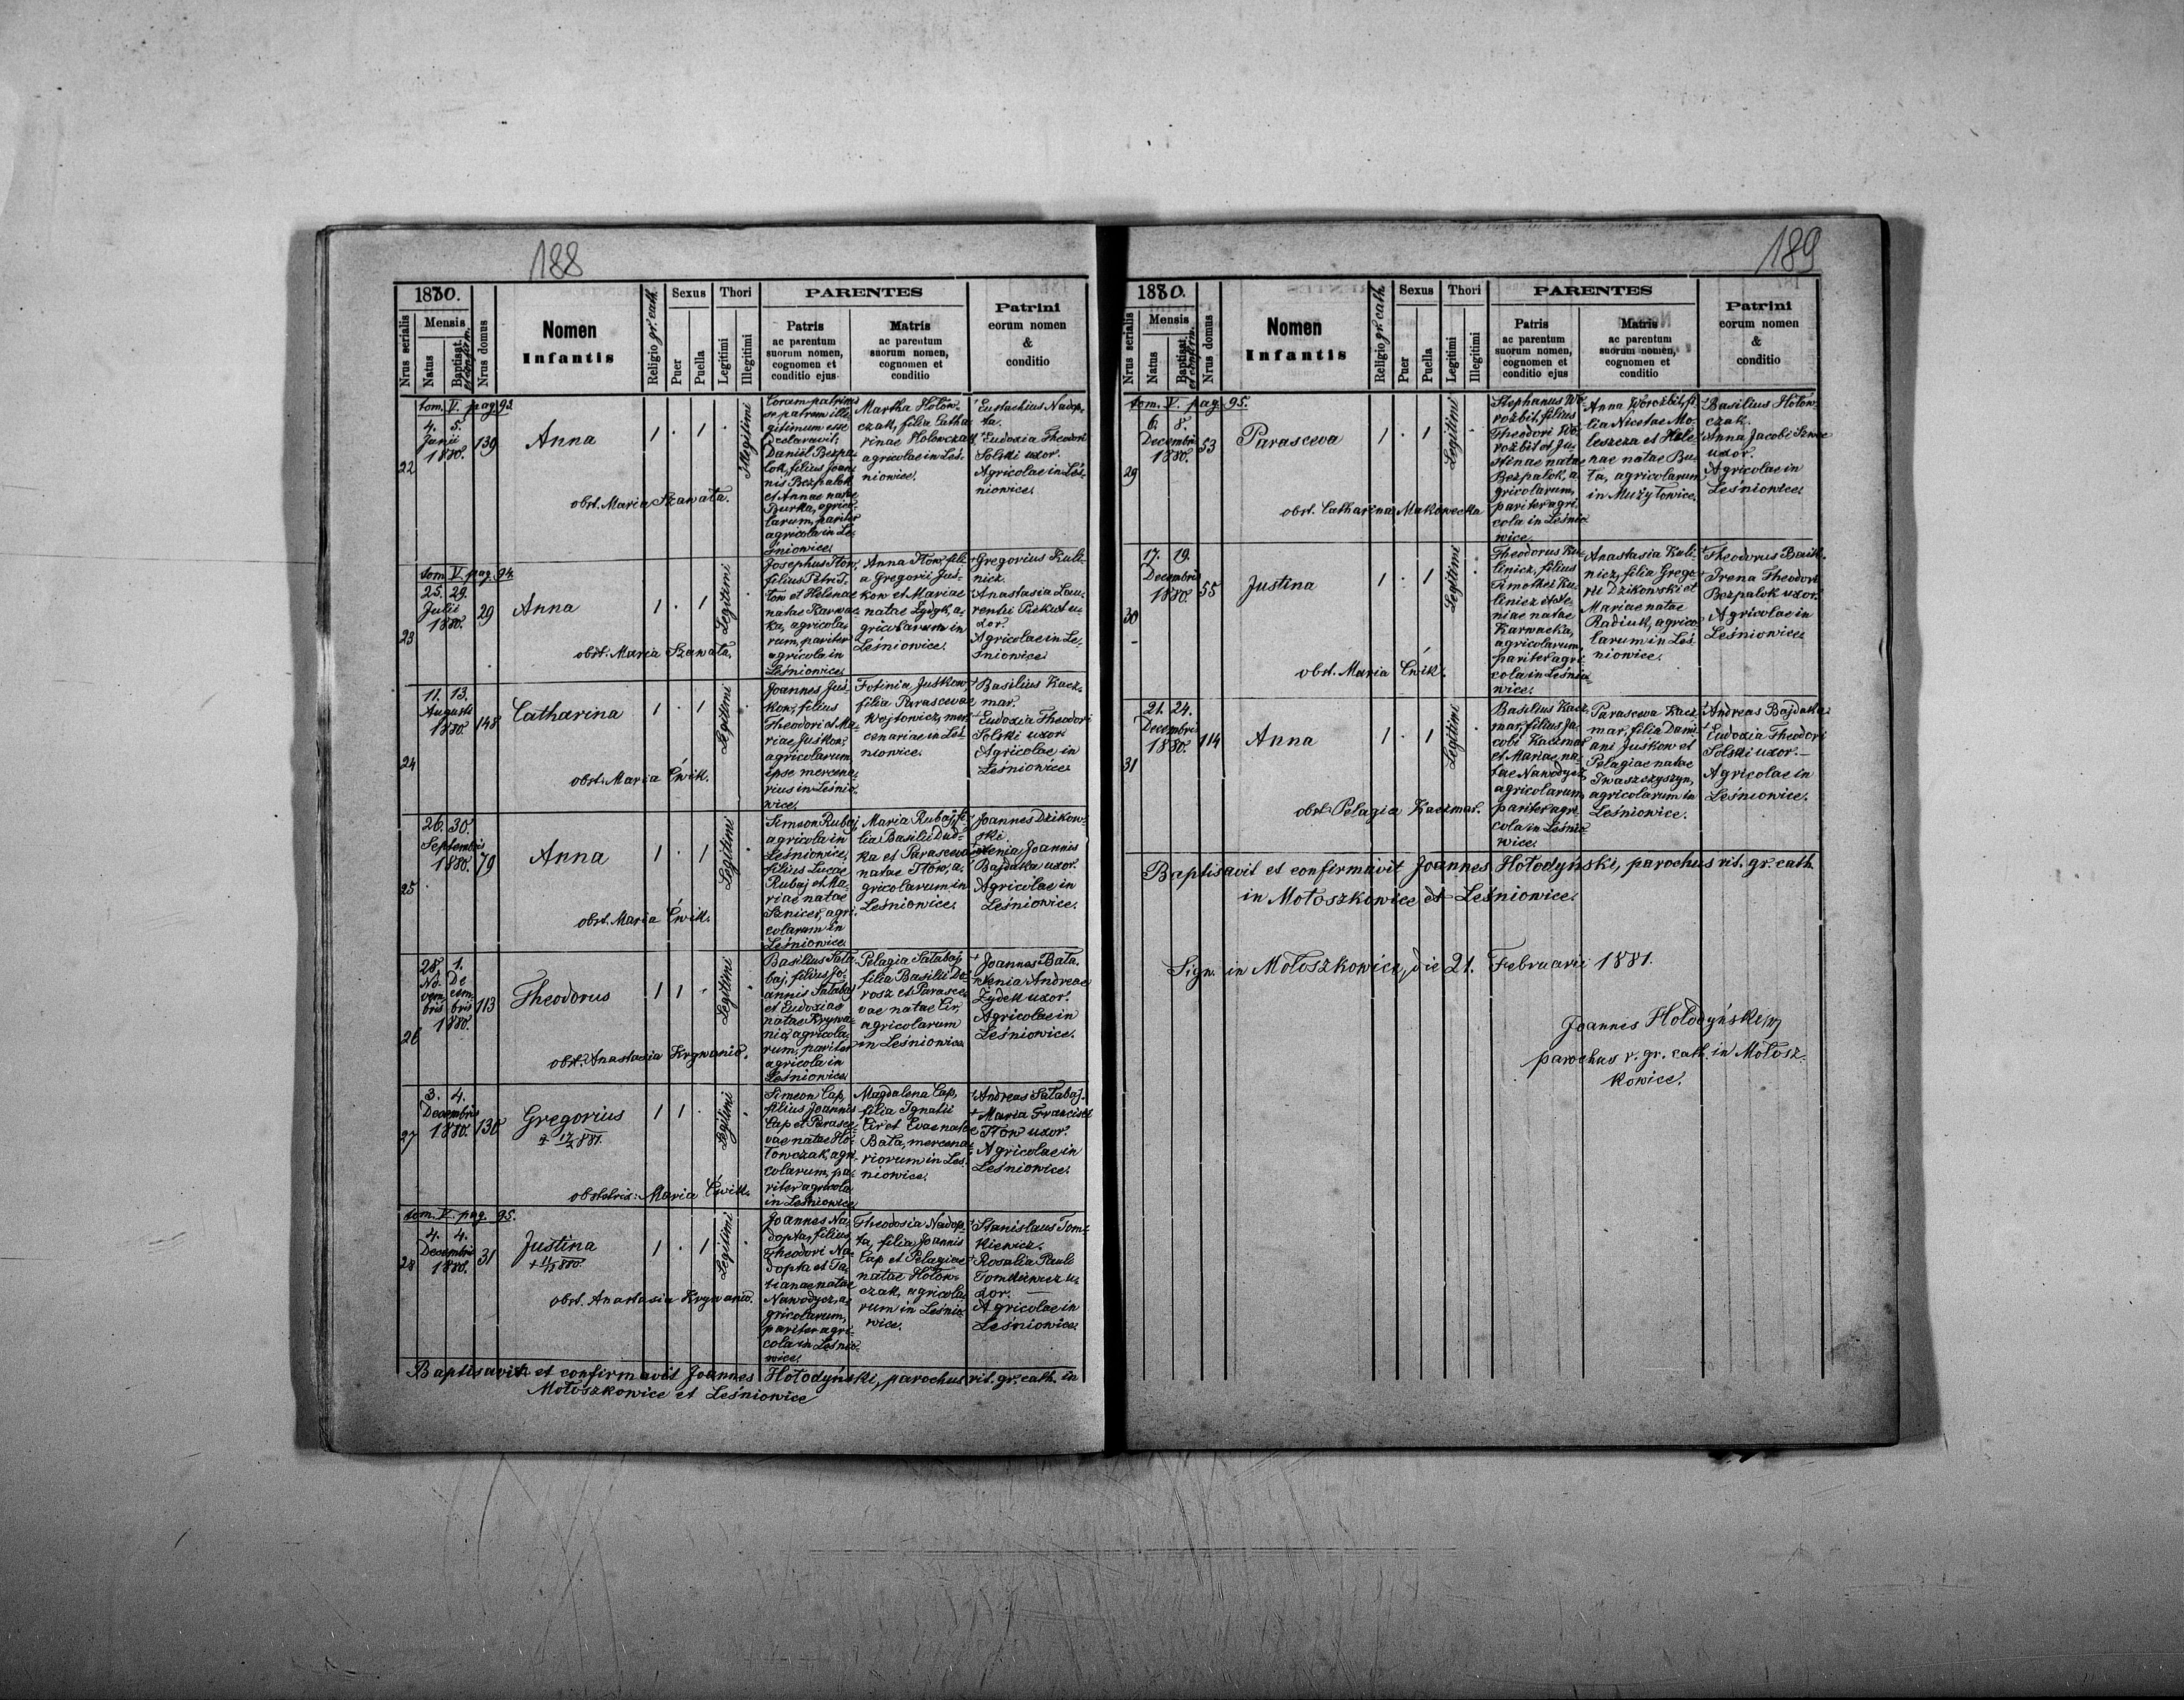 188
1880.
Nrus serialis
Mensis
Natus
Baptisat.
et confirm.
Nrus domus
Nomen
Infantis
Religio gr. cath.
Sexus
Puer
Puella
Thori
Legitimi
Illegitimi
PARENTES
Patris
ac parentum
suorum nomen,
cognomen et
conditio ejus
Matris
ac parentum
suorum nomen,
cognomen et
conditio
Patrini
eorum nomen
&
conditio
tom. V. pag. 93.
22
4. 5.
Junii
1880.
139
Anna
1 . 1 .
Illegitimi
obst. Maria Szawała.
Coram patrinis
se patrem ille
gitimum esse
declaravit,
Daniel Bezpa-
lok, filius Joan
nis Bezpalok
et Annae natae
Burka, agrico-
larum, pariter
agricola in Le-
śniowice.
Martha Hołow-
czak, filia Catha
rinae Hołowczak
agricolae in Leś-
niowice.
Eustachius Nadop-
ta.
Eudoxia Theodori
Solski uxor.
Agricolae in Leś-
niowice.
tom. V. pag. 94.
23
25. 29.
Julii
1880.
29
Anna
1 . 1
Legitimi
obst. Maria Szawała.
Josephus Iłow,
filius Petri I-
łow et Helenae
natae Karwac-
ka, agricola-
rum, pariter
agricola in
Leśniowice.
Anna Iłow, fili-
a Gregorii Juś-
kow et Mariae
natae Żydyk, a-
gricolarum in
Leśniowice.
Gregorius Kuli-
nicz.
Anastasia Lau-
rentii Pickut u-
xor.
Agricolae in Le-
śniowice.
24
11. 13.
Augusti
1880.
148
Catharina
1 . 1
Legitimi
obst. Maria Ćwik.
Joannes Juś-
kow, filius
Theodori et Ma-
riae Juśkow,
agricolarum,
ipse mercena-
rius in Leśnio-
wice.
Fotinia Juśkow,
filia Parascevae
Wojtowicz, mer-
cenariae in Leś-
niowice.
Basilius Kacz-
mar.
Eudoxia Theodori
Solski uxor.
Agricolae in
Leśniowice.
25
26. 30.
Septembris
1880.
79
Anna
1 . 1
Legitimi
obst. Maria Ćwik.
Simeon Rubaj
agricola in
Leśniowice,
filius Lucae
Rubaj et Ma-
riae natae
Sanicer, agri-
colarum in
Leśniowice.
Maria Rubaj, fi-
lia Basilii Dud-
ka et Parascevae
natae Iłow, a-
gricolarum in
Leśniowice.
Joannes Dzikow-
ski.
Xenia Joannis
Bajdała uxor.
Agricolae in
Leśniowice.
26
28. 1.
No- De
vem- cem-
bris bris
1880.
113
Theodorus
1 1 .
Legitimi
obst. Anastasia Krywanio.
Basilius Sała-
baj, filius Jo-
annis Sałabaj
et Eudoxiae
natae Krywa-
nio, agricola-
rum, pariter
agricola in
Leśniowice.
Pelagia Sałabaj,
filia Basilii Do-
rosz et Parasce-
vae natae Cir,
agricolarum
in Leśniowice.
Joannes Bała.
Xenia Andreae
Żydek uxor.
Agricolae in
Leśniowice.
27
3. 4.
Decembris
1880.
130
Gregorius
1 1 .
Legitimi
obstetrix: Maria Ćwik.
Simeon Cap,
filius Joannis
Cap et Parasce-
vae natae Ho-
łowczak, agri-
colarum, pa-
riter agricola
in Leśniowice.
Magdalena Cap,
filia Ignatii
Cir et Evae natae
Bała, mercena-
riorum in Leś-
niowice.
Andreas Sałabaj.
Maria Francisci
Iłow uxor.
Agricolae in
Leśniowice.
tom. V. pag. 95.
28
4. 4.
Decembris
1880.
31
Justina
1 . 1
Legitimi
obst. Anastasia Krywanio.
Joannes Na-
dopta, filius
Theodori Na-
dopta et Ta-
tianae natae
Nawodycz, a-
gricolarum,
pariter agri-
cola in Leśnio-
wice.
Theodosia Nadop-
ta, filia Joannis
Cap et Pelagiae
natae Hołow-
czak, agricola-
rum in Leśnio-
wice.
Stanislaus Tom-
kiewicz.
Rosalia Pauli
Tomkiewicz u-
xor.
Agricolae in
Leśniowice.
Baptisavit et confirmavit Joannes Hołodyński, parochus rit. gr. cath. in
Mołoszkowice et Leśniowice
189
1880.
Nrus serialis
Mensis
Natus
Baptisat.
et confirm.
Nrus domus
Nomen
Infantis
Religio gr. cath.
Sexus
Puer
Puella
Thori
Legitimi
Illegitimi
PARENTES
Patris
ac parentum
suorum nomen,
cognomen et
conditio ejus
Matris
ac parentum
suorum nomen,
cognomen et
conditio
Patrini
eorum nomen
&
conditio
tom. V. pag. 95.
29
6. 8.
Decembris
1880.
53
Parasceva
1 . 1
Legitimi
obst. Catharina Makowecka
Stephanus Wo-
rożbit, filius
Theodori Wo-
rożbit et Ju-
stinae natae
Bezpalok, a-
gricolarum,
pariter agri-
cola in Leśnio-
wice.
Anna Worożbit, fi-
lia Nicetae Mo-
leszcza et Hele-
nae natae Bu-
ta, agricolarum
in Mużyłowice.
Basilius Hołow-
czak.
Anna Jacobi Szwec
uxor.
Agricolae in
Leśniowice.
30
17. 19.
Decembris
1880.
55
Justina
1 . 1
Legitimi
obst. Maria Ćwik.
Theodorus Ku-
linicz, filius
Timothei Ku-
linicz et Xe-
niae natae
Karwacka,
agricolarum,
pariter agri-
cola in Leśnio-
wice.
Anastasia Kuli-
nicz, filia Grego-
rii Dzikowski et
Mariae natae
Radiuk, agrico-
larum in Leś-
niowice.
Theodorus Bacik.
Irena Theodori
Bezpalok uxor.
Agricolae in
Leśniowice.
31
21. 24.
Decembris
1880.
114
Anna
1 . 1
Legitimi
obst. Pelagia Kaczmar.
Basilius Kacz-
mar, filius Ja-
cobi Kaczmar
et Mariae na-
tae Nawodycz,
agricolarum,
pariter agri-
cola in Leśnio-
wice.
Parasceva Kacz-
mar, filia Dami-
ani Juskow et
Pelagiae natae
Iwaszczyszyn,
agricolarum in
Leśniowice.
Andreas Bajdała.
Eudoxia Theodori
Solski uxor. —
Agricolae in
Leśniowice.
Baptisavit et confirmavit Joannes Hołodyński, parochus rit. gr. cath.
in Mołoszkowice et Leśniowice.
Sign. in Mołoszkowice, die 21. Februarii 1881.
Joannes Hołodyński
parochus r. gr. cath. in Mołosz-
kowice.